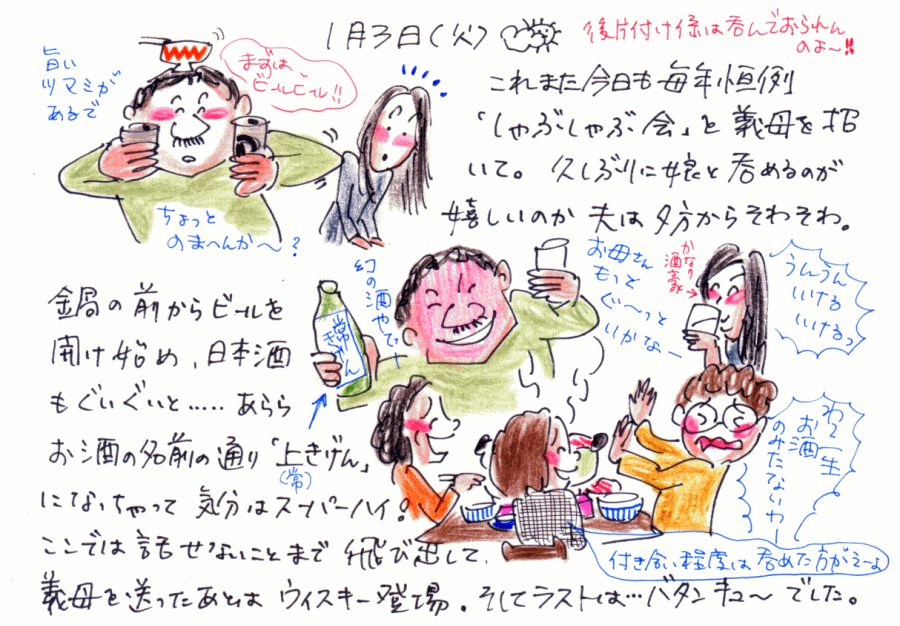 1月3日(火)
後片付け係は呑んでおられん
のよ〜!!
旨い
ツマミが
あるで
まずは
ビールビール!!
ちょっと
のまへんか〜?
これまた今日も毎年恒例
「しゃぶしゃぶ会」と義母を招
いて。久しぶりに娘と呑めるのが
嬉しいのか夫は夕方からそわそわ。
幻の酒やでー
常きげん
お母さん
もっと
ぐぃ〜っと
いかなー
かなり
酒豪
うんうん
いける
いけるっ
鍋の前からビールを
開け始め、日本酒
もぐいぐいと.....あらら
お酒の名前の通り「上きげん」
(常)
になっちゃって気分はスーパーハイ!
ここでは話せないことまで飛び出して、
義母を送ったあとは ウィスキー登場。そしてラストは…バタンキュ〜でした。
一生
お酒
のみたないわー
付き合い程度は呑めた方がえーよ